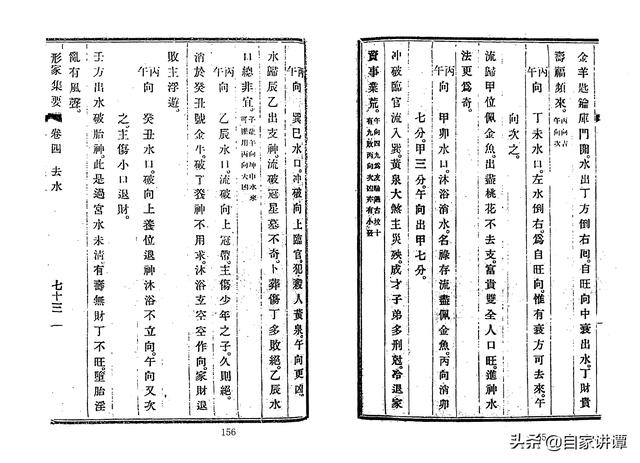 金羊匙鑰庫門開。水出丁方倒右囘。自旺向中衰出水。丁財貴
壽福頻來。丙向吉午向次
丙午向 丁未水口。左水倒右。爲自旺向。惟有衰方可去來。午
向次之。
流歸甲位佩金魚。出盡桃花不去支。富貴雙全人口旺。進神水
法更爲奇。
丙午向 甲卯水口。沐浴消水。名祿存流盡佩金魚。丙向消卯
七分。甲三分。午向出甲七分。
冲破臨官流入巽。黃泉大煞主災殃。成才子弟多刑尅。冷退家
資事業荒。午向四九爲友驗過古坟十有九敗丙向次凶亦有小發
丙午向 巽巳水口。冲破向上臨官。犯殺人黃泉。午向更凶。
水歸辰乙出支神。流破冠星墓不奇。卜葬傷丁多敗絕。乙辰水
口總非宜。子龍午向坤申水來可權用丙向大凶
丙午向 乙辰水口。流破向上冠帶。主傷少年之子。久則絕。
消於癸丑號金牛。破丁養神不用求。沐浴支空空作向。家財退
敗主浮遊。
丙午向 癸丑水口。破向上養位退神沐浴不立向。午向又次
之。主傷小口退財。
壬方出水破胎神。此是過宮水未清。有壽無財丁不旺。墮胎淫
亂有風聲。
形家集要 卷四 去水 七十三
156
头条 @自家讲谭